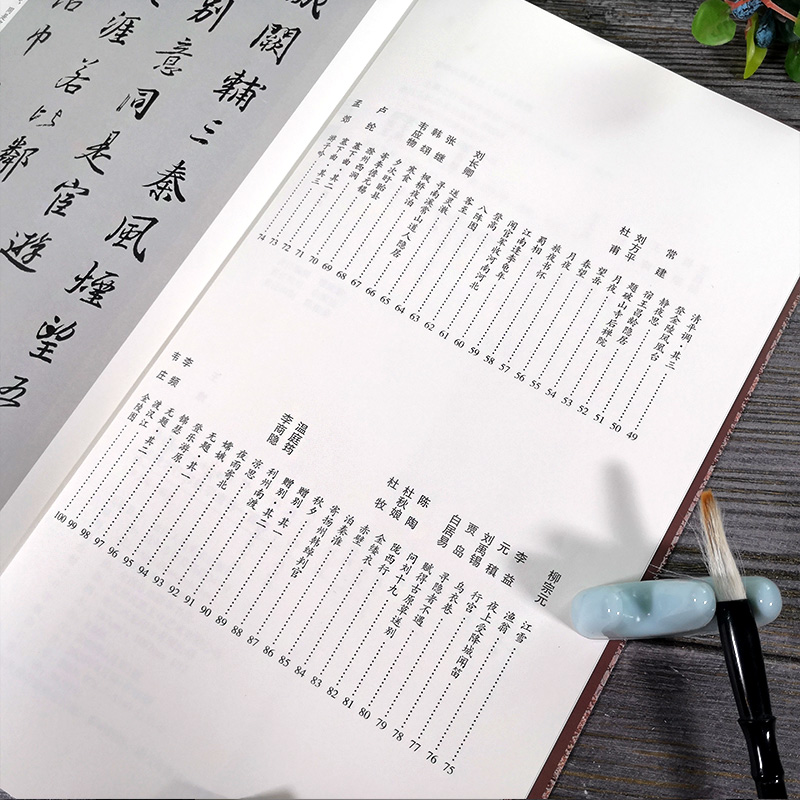 常建
清平调·其三 49
登金陵凤凰台 50
静夜思 51
宿王昌龄隐居 52
题破山寺后禅院 53
刘方平
月夜 54
杜甫
望岳 55
春望 56
月夜 57
旅夜书怀 58
蜀相 59
江南逢李龟年 60
闻官军收河南河北 61
登高 62
八阵图 63
客至 64
刘长卿
送灵澈 65
寻南溪常山道人隐居 66
张继
枫桥夜泊 67
韩翃
寒食 68
韦应物
夕次盱眙县 69
寄李儋元锡 70
滁州西涧 71
卢纶
塞下曲·其二 72
塞下曲·其三 73
孟郊
游子吟 74
柳宗元
江雪 75
渔翁 76
李益
夜上受降城闻笛 77
元稹
行宫 78
刘禹锡
乌衣巷 79
贾岛
寻隐者不遇 80
白居易
赋得古原草送别 81
问刘十九 82
陈陶
陇西行 83
杜秋娘
金缕衣 84
杜牧
赤壁 85
泊秦淮 86
寄扬州韩绰判官 87
秋夕 88
赠别·其一 89
赠别·其二 90
温庭筠
利州南渡 91
李商隐
凉思 92
夜雨寄北 93
嫦娥 94
无题 95
登乐游原 96
锦瑟 97
无题 98
李频
渡汉江 99
韦庄
金陵图 100
闕輔三秦風煙望五
別意同是宦遊
涯若比鄰